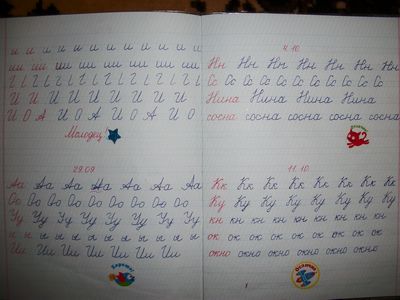 и и и и и и и и и и и
ии ии ии ии ии ии ии ии
И И И И И И И И
И О А И О А И О А И О
Молодец
29.09
Аа Аа Аа Аа Аа Аа Аа
Оо Оо Оо Оо Оо Оо Оо Оо Оо
Уу Уу Уу Уу Уу Уу Уу Уу
ы ы ы ы ы ы ы ы ы
Ии Ии Ии Ии Ии Ии Ии
Хорошо!
4.10
Нн Нн Нн Нн Нн Нн Нн
Сс Сс Сс Сс Сс Сс Сс Сс Сс Сс
Нина Нина Нина Нина
сосна сосна сосна сосна сосна
11.10
Кк Кк Кк Кк Кк Кк Кк Кк
Ку Ку Ку Ку Ку Ку Ку Ку
кн кн кн кн кн кн кн кн
ок ок ок ок ок ок ок ок
окно окно окно окно окно окно